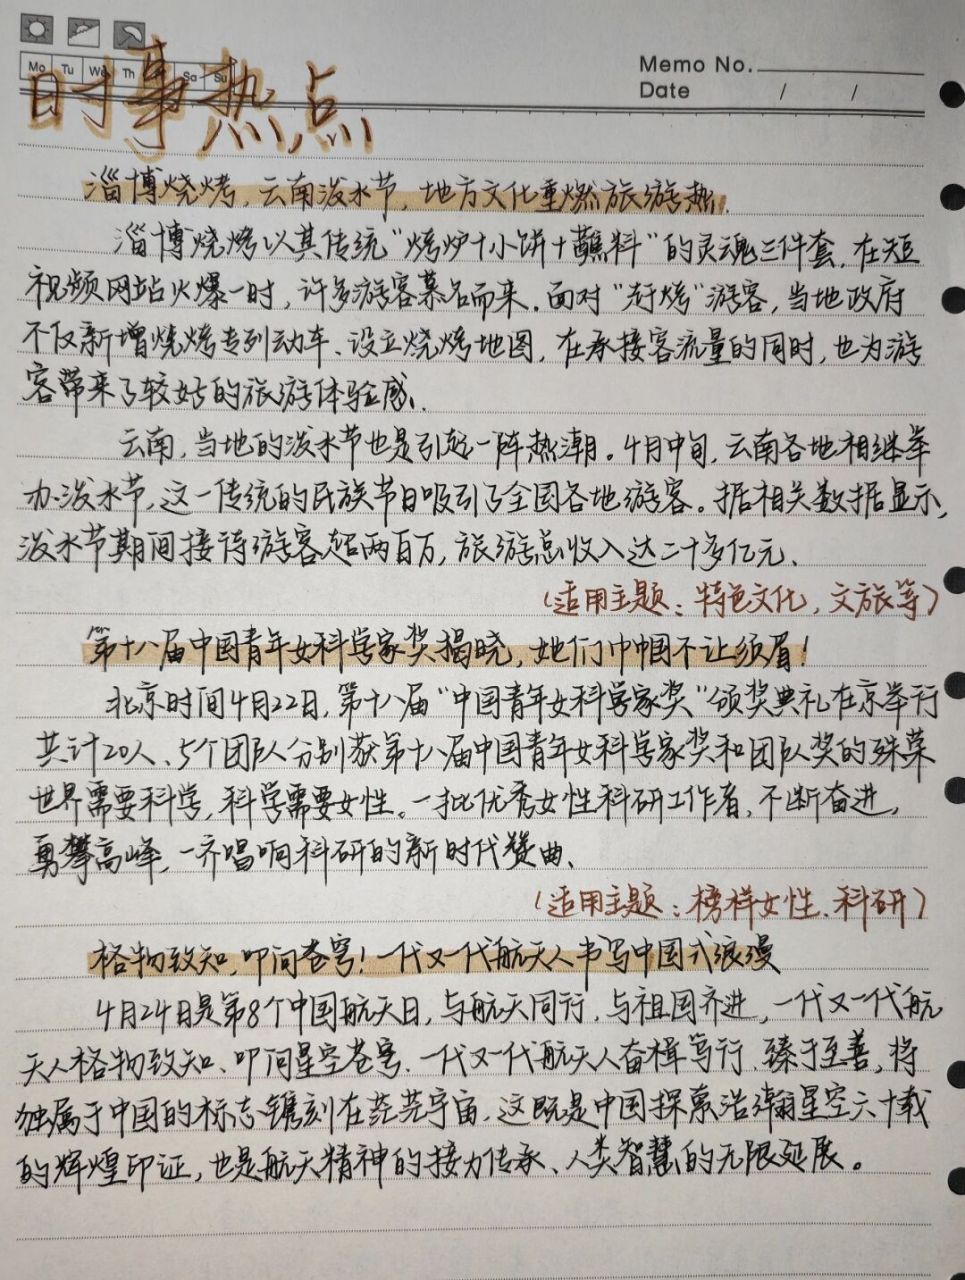 Memo No.
Mo Tu We Th Sa Su
Date / /
时事热点
淄博烧烤,云南泼水节,地方文化重燃旅游热.
淄博烧烤以其传统“烤炉+小饼+蘸料”的灵魂三件套,在短
视频网站火爆一时,许多游客慕名而来.面对“赶烤”游客,当地政府
不仅新增烧烤专列动车、设立烧烤地图,在承接客流量的同时,也为游
客带来了较好的旅游体验感.
云南,当地的泼水节也是引起一阵热潮。4月中旬,云南各地相继举
办泼水节,这一传统的民族节日吸引了全国各地游客。据相关数据显示,
泼水节期间接待游客超两百万,旅游总收入达二十多亿元、
(适用主题:特色文化,文旅等)
第十八届中国青年女科学家奖揭晓,她们巾帼不让须眉!
北京时间4月22日,第十八届“中国青年女科学家奖”颁奖典礼在京举行
共计20人、5个团队分别获第十八届中国青年女科学家奖和团队奖的殊荣
世界需要科学,科学需要女性。一批优秀女性科研工作者,不断奋进,
勇攀高峰,一齐唱响科研的新时代赞曲、
(适用主题:榜样女性、科研)
格物致知,叩问苍穹!一代又一代航天人书写中国式浪漫
4月24日是第8个中国航天日,与航天同行,与祖国齐进,一代又一代航
天人格物致知、叩问星空苍穹.一代又一代航天人奋楫笃行、臻于至善,将
独属于中国的标志镌刻在茫茫宇宙、这既是中国探索浩瀚星空六十载
的辉煌印证,也是航天精神的接力传承、人类智慧的无限延展。